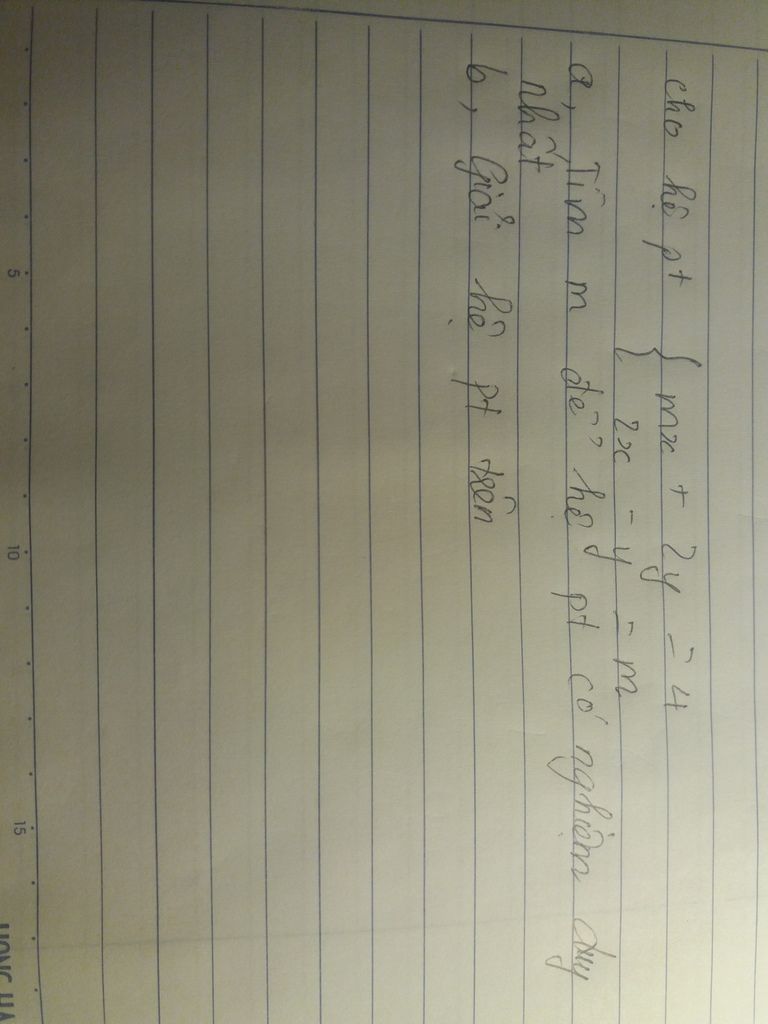 cho hệ pt { mx + 2y = 4
{ 2x - y = m
a, Tìm m để hệ pt có nghiệm duy
nhất
b, Giải hệ pt trên
5
10
15